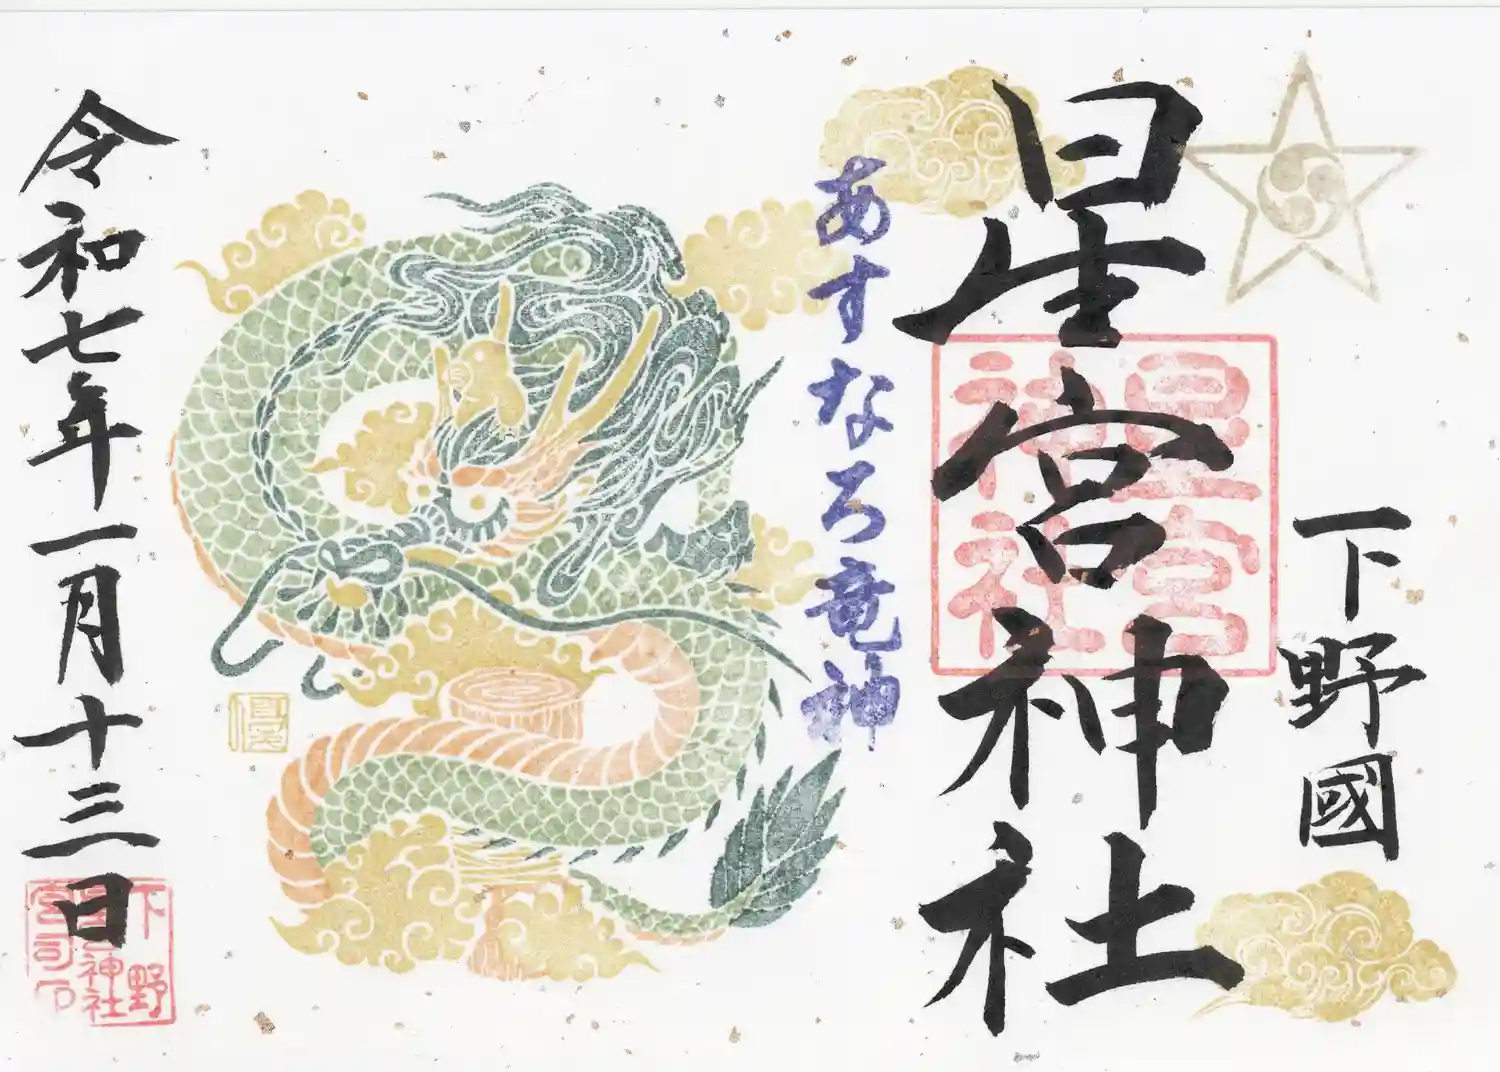 下野國
星宮神社
星宮
神社
あすなろ竜神
優
令和七年一月十三日
下野
神社
宮司